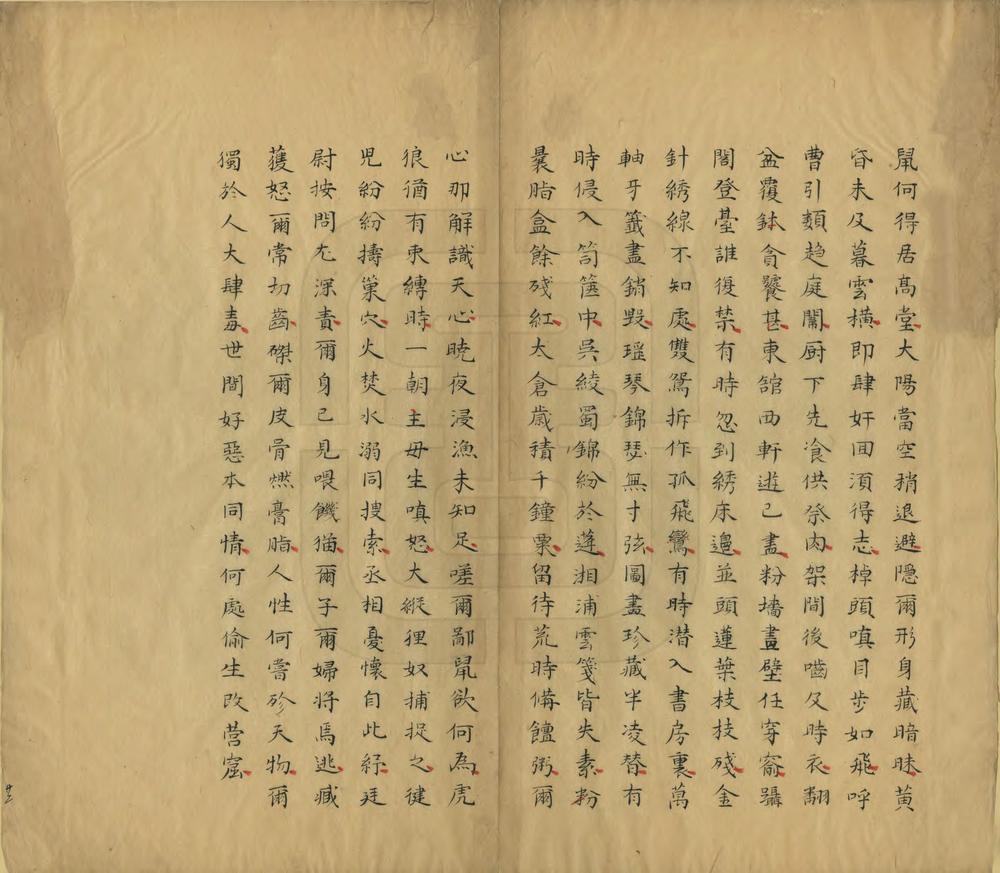 鼠何得居高堂大陽當空稍退避隱爾形身藏暗昧黃
昏未及暮雲橫即肆奸回須得志棹頭嗔目步如飛呼
曹引類趋庭闈厨下先飡供祭肉架間後嚙及時衣翻
盆覆鉢貪饕甚東舘西軒遊已盡粉墻畫壁任穿窬躡
閣登臺誰復禁有時忽到綉床邉並頭蓮葉枝枝殘金
針綉線不知處雙鴛拆作孤飛鸞有時潛入書房裏萬
軸牙籤盡銷毀瑶琴錦瑟無寸弦圖畫珍藏半凌替有
時侵入笥箧中吳綾蜀錦紛於蓬湘浦雲箋皆失素粉
奩脂盒餘殘紅太倉歲積千鐘粟留待荒時俻饘粥爾
心那解識天心曉夜浸漁未知足嗟爾鄙鼠欲何為虎
狼猶有束縛時一朝主毋生嗔怒大縱狸奴捕捉之健
児紛紛擣巢穴火焚水溺同搜索丞相憂懷自此紓廷
尉按問尤深責爾身已見喂饑猫爾子爾婦將焉逃臧
獲怒爾常切齒磔爾皮骨燃膏脂人性何嘗殄天物爾
獨於人大肆毒世間好惡本同情何處偷生改营窟
廿二